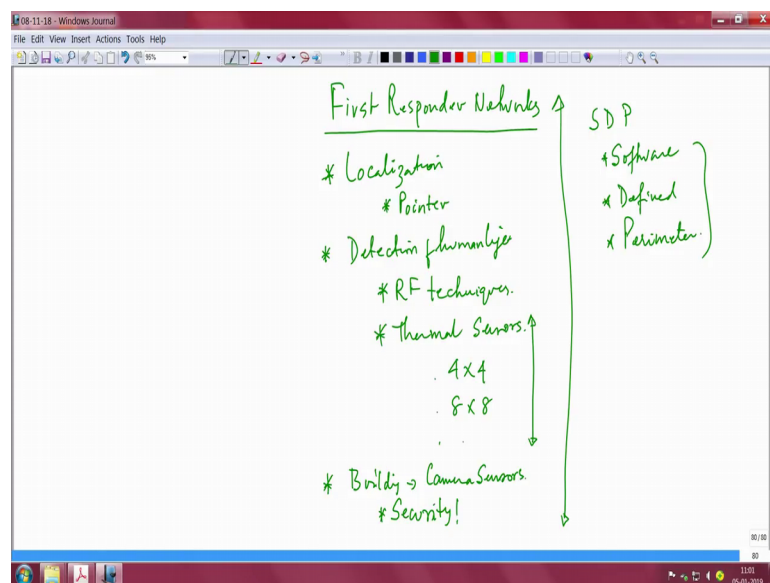 08-11-18 - Windows Journal
File Edit View Insert Actions Tools Help
95%
B I
First Responder Networks
* Localization
* Pointer
* Detection of human life
* RF techniques.
* Thermal Sensors.
. 4x4
. 8x8
. .
* Building → Camera Sensors.
* Security!
SDP
* Software
* Defined
* Perimeter.
80/80
80
11:01
05-01-2019